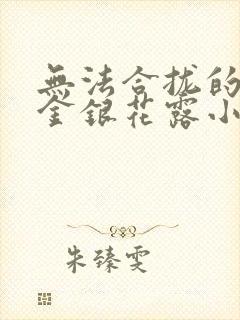 無法合拢的
金銀花露小
朱臻雯